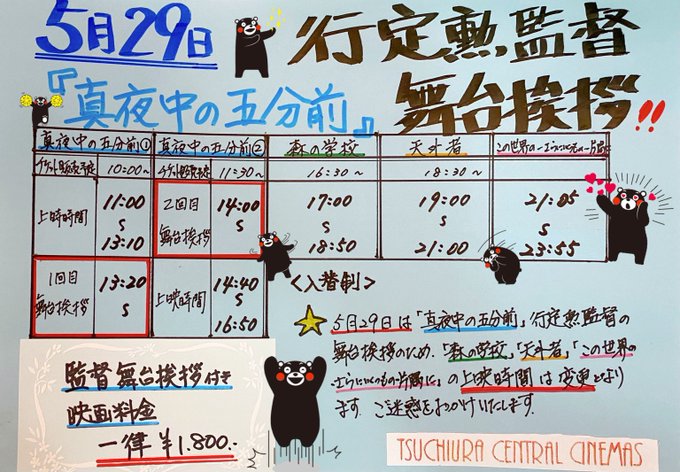 5月29日 行定勲監督
『真夜中の五分前』 舞台挨拶!!
真夜中の五分前① 真夜中の五分前② 森の学校 天外者
10:00～ 11:30～ 16:30～ 18:30～
上映時間 11:00 S 13:10
2回目 舞台挨拶 14:00 S
17:00 S 18:50
19:00 S 21:00
21:05 S 23:55
1回目 舞台挨拶 13:20 S
上映時間 14:40 S 16:50
<入替制>
5月29日は「真夜中の五分前」行定勲監督の
舞台挨拶のため、「森の学校」「天外者」「この世界の
さらにいくつもの片隅に」の上映時間は変更となり
ます。ご迷惑をおかけいたします。
監督舞台挨拶付き
映画料金
一律¥1.800.-
TSUCHIURA CENTRAL CINEMAS